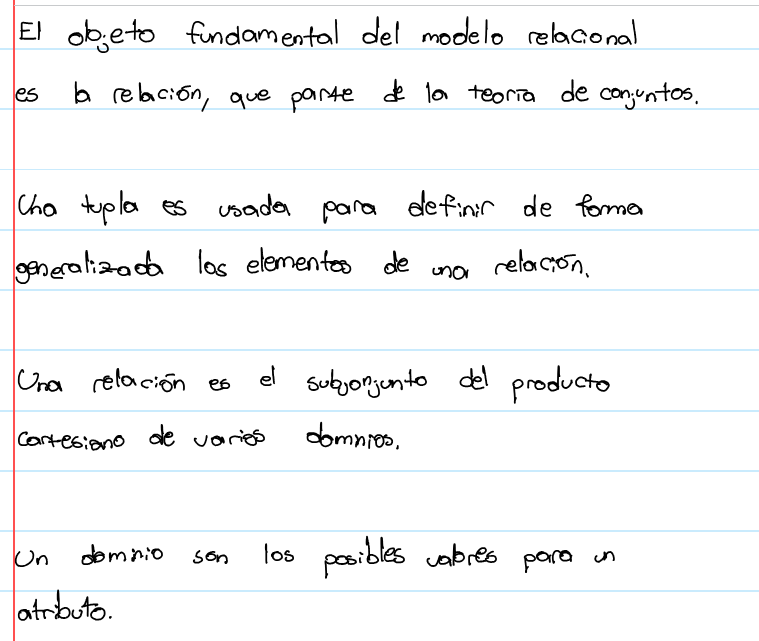 El objeto fundamental del modelo relacional
es la relación, que parte de la teoría de conjuntos.
Una tupla es usada para definir de forma
generalizada los elementos de una relación.
Una relación es el subjonjunto del producto
cartesiano de varios domnios.
Un domnio son los posibles valores para un
atributo.